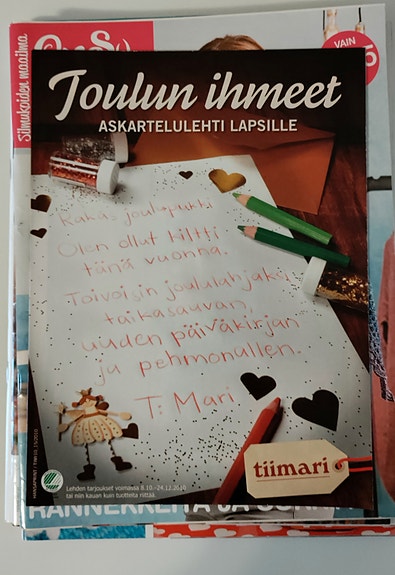 Silmukoiden maailma
VAIN
Joulun ihmeet
ASKARTELULEHTI LAPSILLE
Rakas joulupukki
Olen ollut kiltti
tänä vuonna.
Toivoisin joululahjaksi
taikasauvan,
uuden päiväkirjan
ja pehmonallen.
T: Mari
tiimari
Lehden tarjoukset voimassa 8.10.-24.12.2010
tai niin kauan kuin tuotteita riittää.
RANNEKKEITA JA